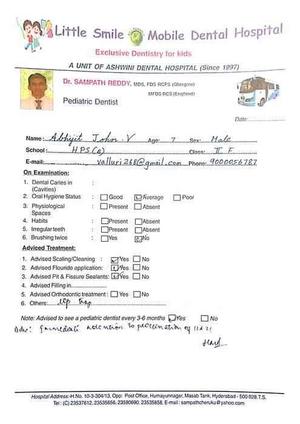 Little Smile Mobile Dental Hospital
Exclusive Dentistry for kids
A UNIT OF ASHWINI DENTAL HOSPITAL (Since 1997)
Dr. SAMPATH REDDY, MDS, FDS RCPS (Glasgow)
MFDS RCS (England)
Pediatric Dentist
Date:
Name: Abhijit John. V Age: 7 Sex: Male
School: H.P.S (R) Class: II F
E-mail: valluri268@gmail.com Phone: 9000056787
On Examination:
1. Dental Caries in (Cavities) :
2. Oral Hygiene Status : Good Average Poor
3. Physiological Spaces : Present Absent
4. Habits : Present Absent
5. Irregular teeth : Present Absent
6. Brushing twice : Yes No
Adviced Treatment:
1. Advised Scaling/Cleaning : Yes No
2. Advised Fluoride application : Yes No
3. Advised Pit & Fissure Sealants : Yes No
4. Advised Filling in
5. Adviced Orthodontic treatment : Yes No
6. Others:
Note: Advised to see a pediatric dentist every 3-6 months Yes No
Adv: Immediate attention to
Hospital Address: H.No. 10-3-304/13, Opp: Post Office, Humayunnagar, Masab Tank, Hyderabad - 500 028.T.S.
Tel: (C) 23537612, 23535656, 23590690, 23535858, E-mail : sampathcheruku@yahoo.com